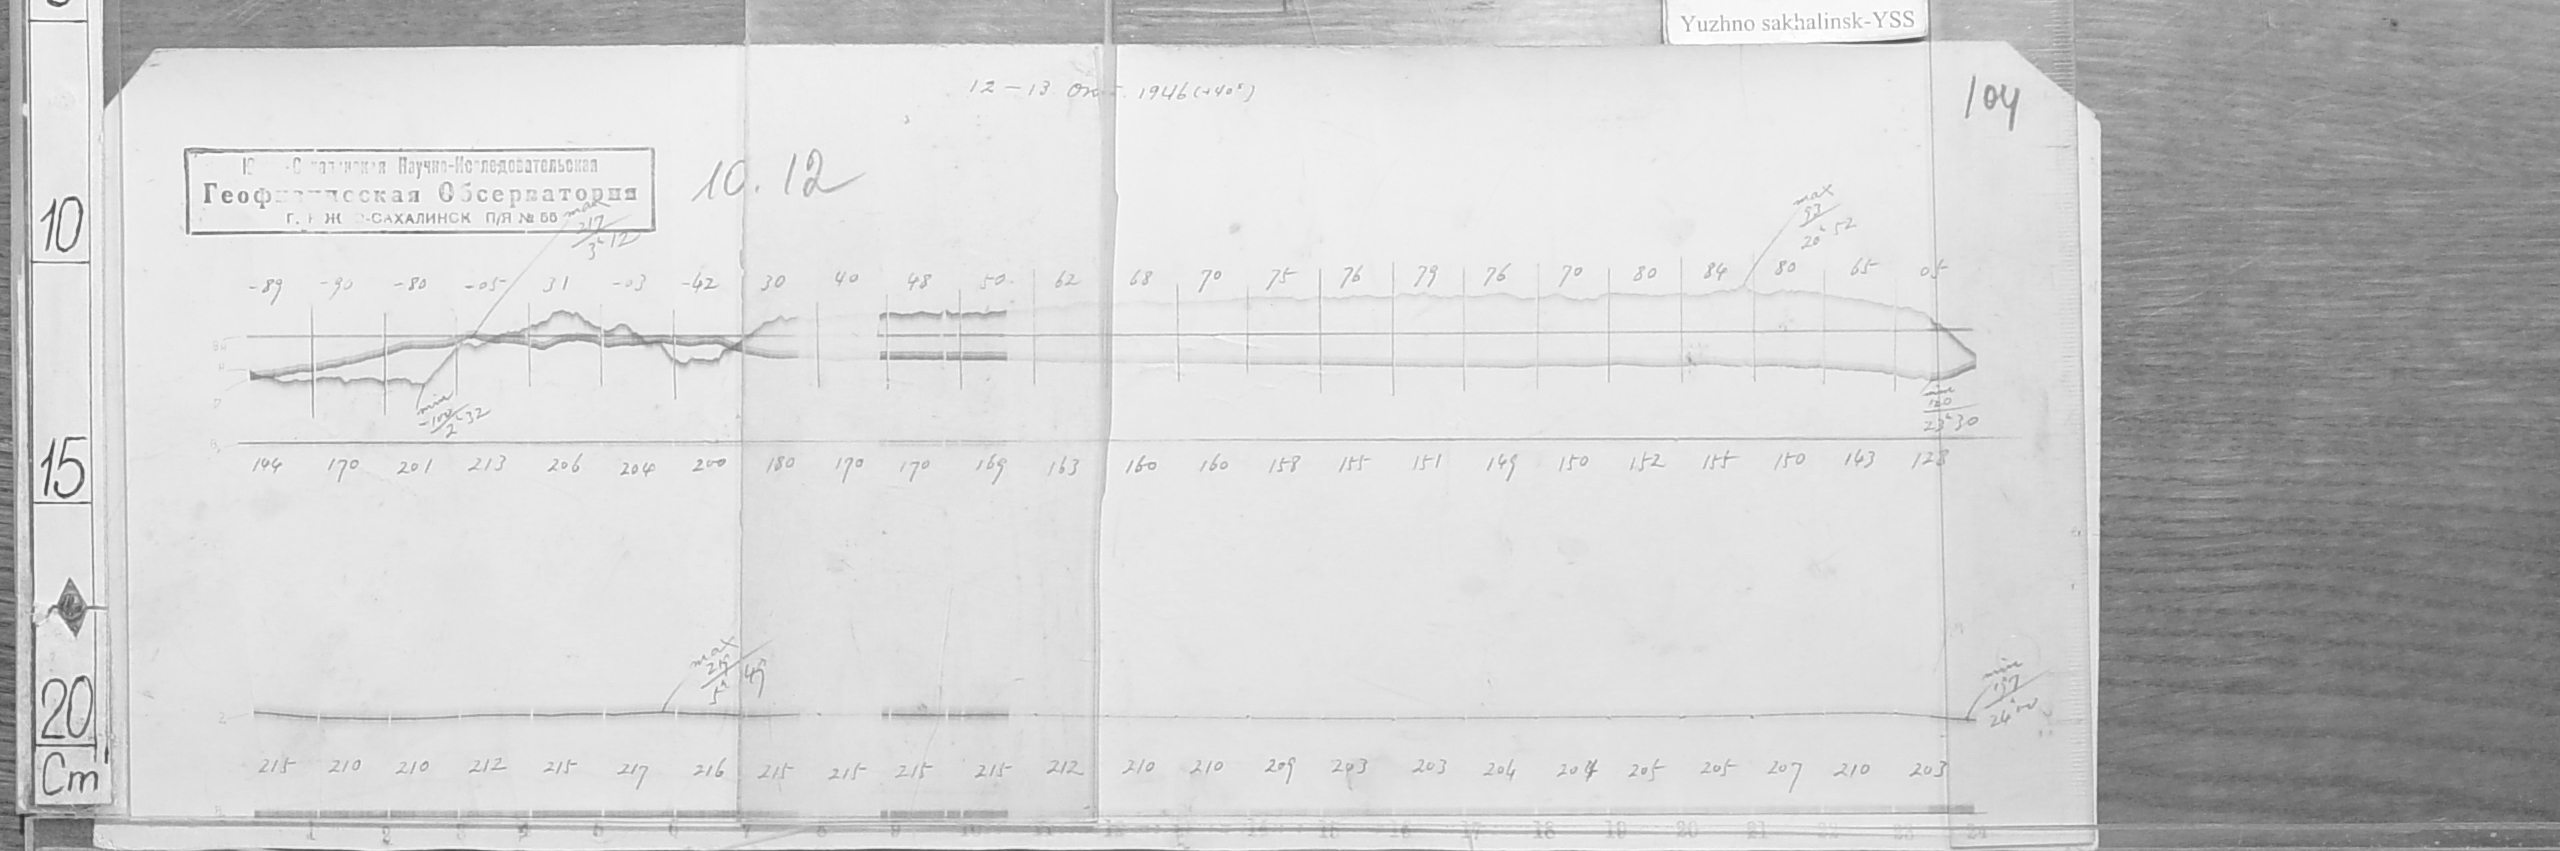 Yuzhno sakhalinsk-YSS
12-13. 1946 (+40ˢ)
104
Научно-Исследовательская
Обсерватория
-САХАЛИНСК П/Я № 56
10.12
max
217
3ʰ12
max
93
20ʰ52
-89 -90 -80 -05 31 -03 -42 30 40 48 50. 62 68 70 75 76 79 76 70 80 84 80 65 05
min
-100
2ʰ32
min
120
23ʰ30
144 170 201 213 206 204 200 180 170 170 169 163 160 160 158 155 151 149 150 152 155 150 143 128
max
219
5ʰ49
min
197
24ʰ00
215 210 210 212 215 217 216 215 215 215 215 212 210 210 209 203 203 204 204 205 205 207 210 203
1 2 3 4 5 6 7 8 9 10 11 12 13 14 15 16 17 18 19 20 21 22 23 24
10
15
20
Cm